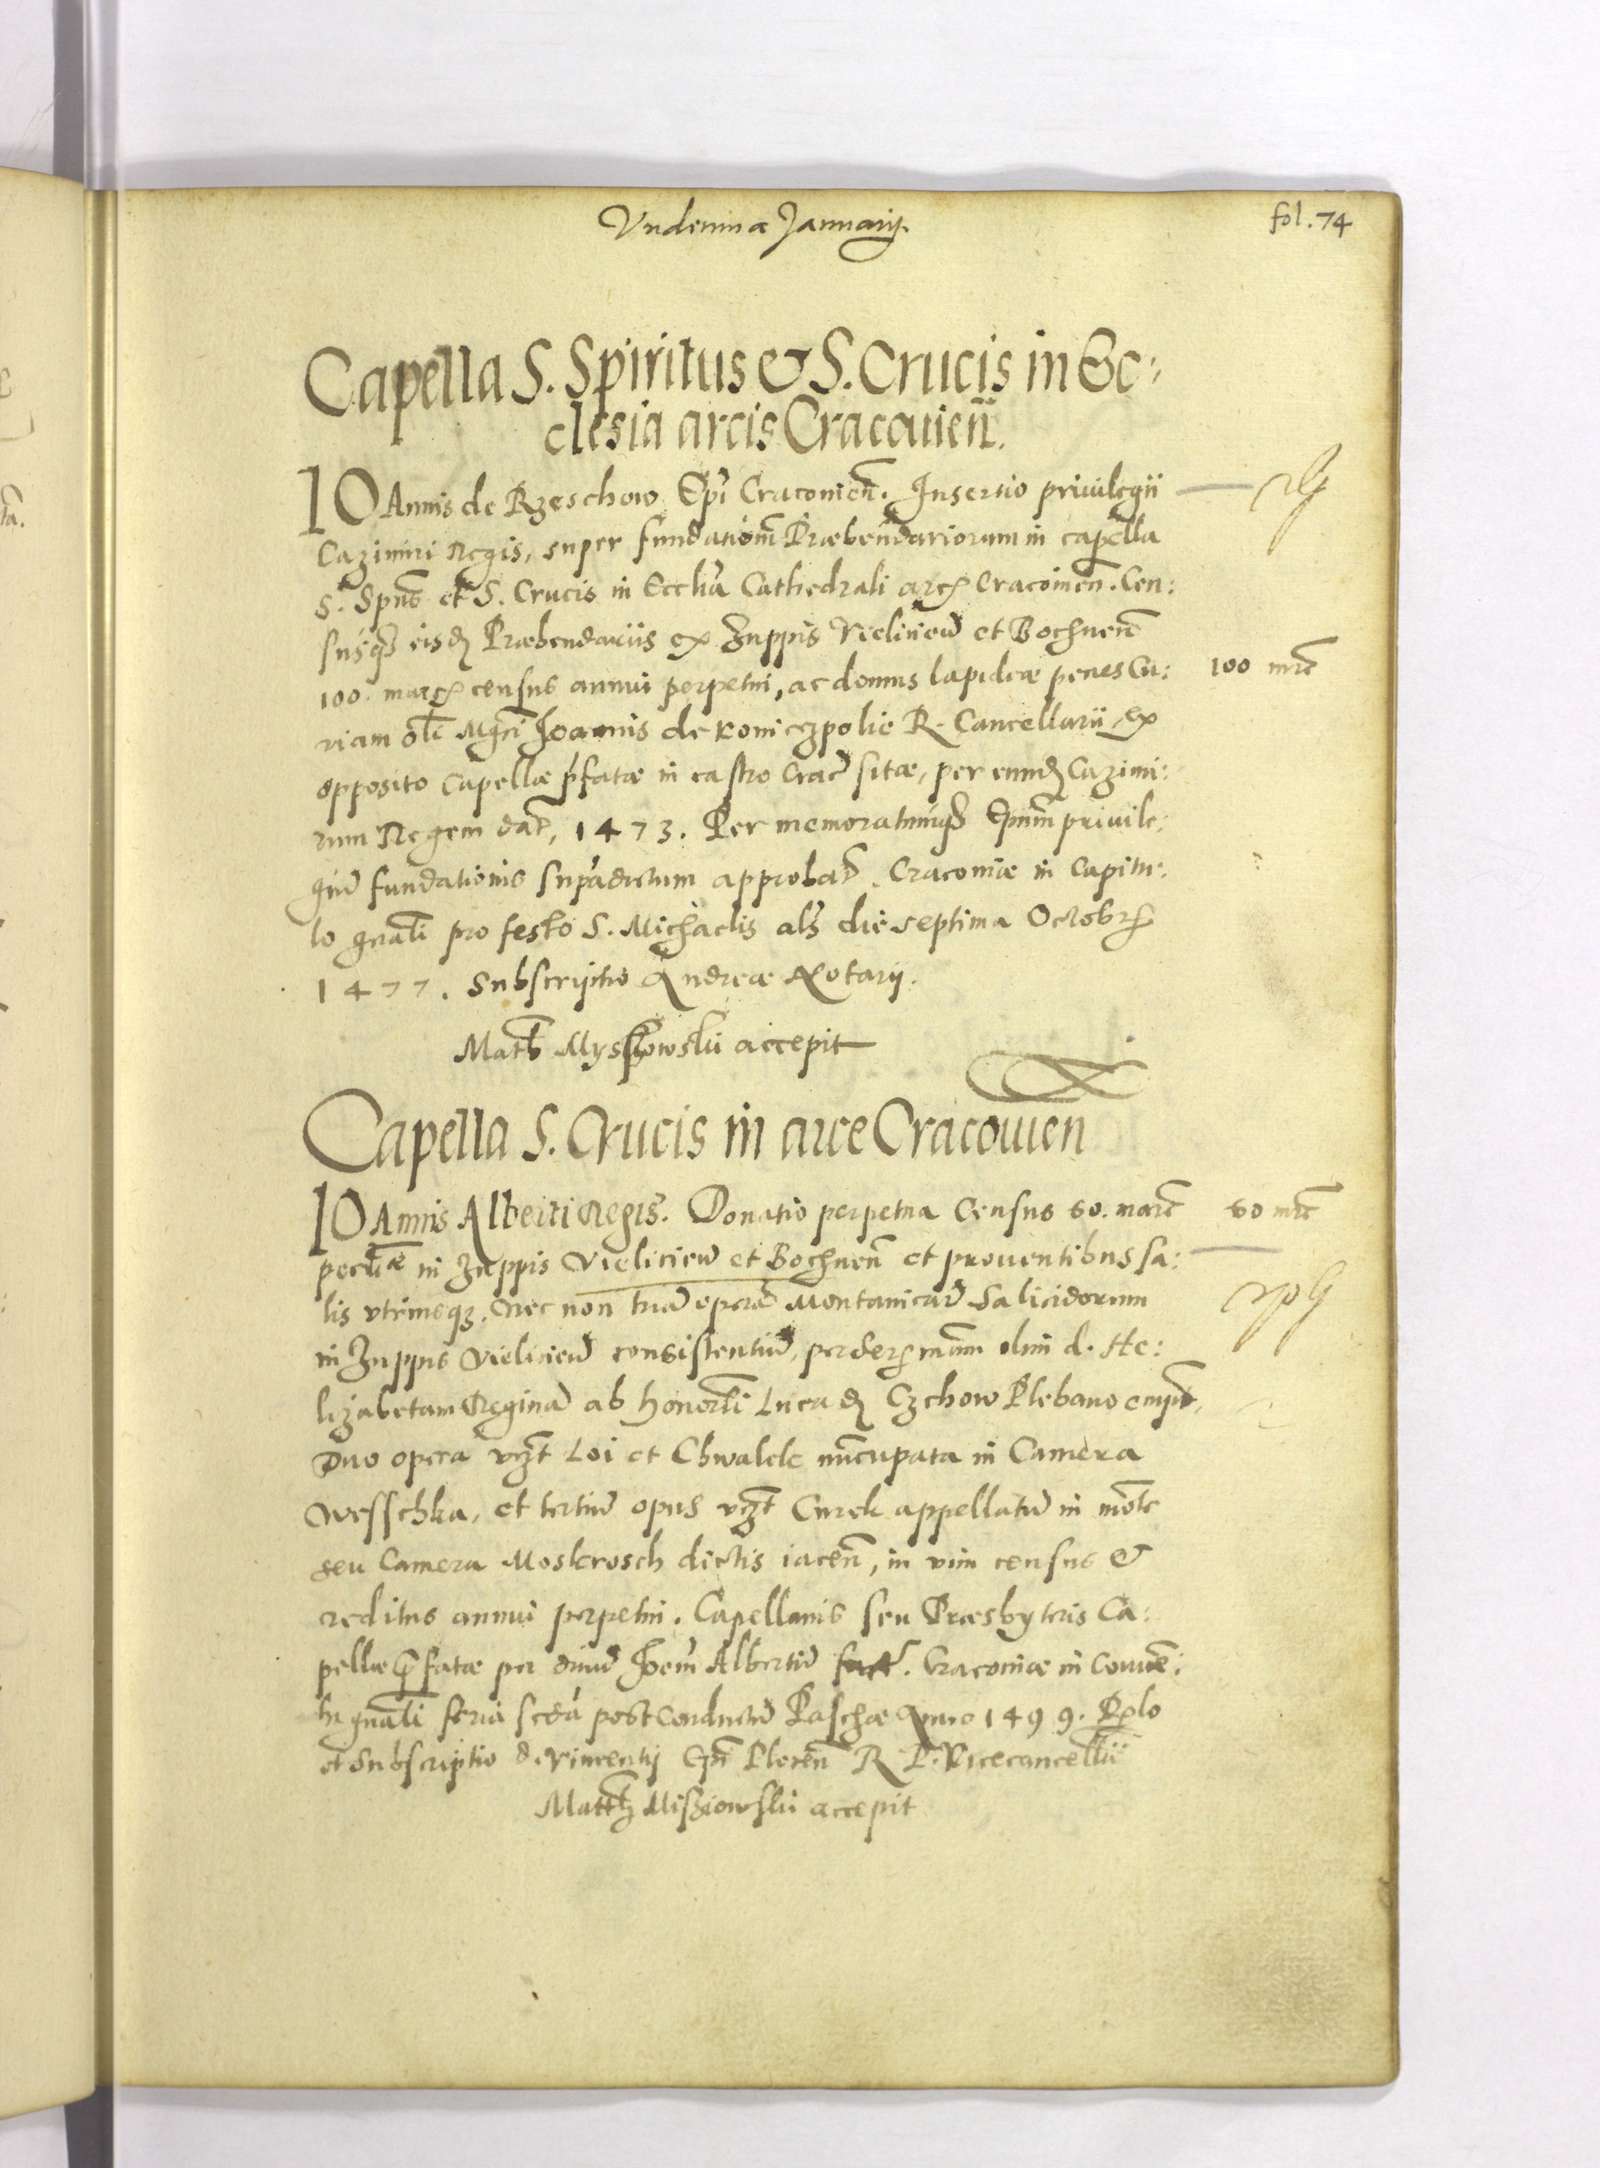 Vndecima Januarij.
fol. 74
Capella S. Spiritus & S. Crucis in Ec:
clesia arcis Cracouien̄.
IOAnnis de Rzeschow Ep̄i Cracouien̄. Insertio priuilegii
Cazimiri Regis, super fundationē Præbendariorum in capella
S. Spūs et S. Crucis in Eccl̄ia Cathedrali arcis Cracouien̄. Cen:
susq̄ eisd. Præbendariis ex Zuppis Vielicien̄ et Bochnen̄
100. marc. census annui perpetui, ac domus lapideæ penes Cu:
100 mrc̄
riam ol̄i Mgc̄i Joannis de Konieczpolie R. Cancellarii, ex
opposito Capellæ p̄fatæ in castro Crac̄ sitæ, per eund. Cazimi:
rum Regem dat̄, 1473. Per memoratumq̄ Ep̄um priuile:
giū fundationis sup̄adictum approbat̄. Cracouiæ in Capitu:
lo gn̄ali pro festo S. Michaelis al̄s die septima Octobr.
1477. Subscriptio Andreæ Notarij.
Matt̄ Myszkowskii accepit
Capella S. Crucis in arce Cracouien̄
IOAnnis Alberti Regis. Donatio perpetua Census 60. marc̄
60 mrc̄
pecuniæ in Zuppis Vielicien̄ et Bochnen̄ et prouentibus sa:
lis vtrinsq3. Nec non triū operū Montanicarū Salicidorum
in Zuppis Vielicien̄ consistentiū, per Ser. mām olim d. He:
lizabetam Reginā ab honorl̄i Luca d. Czchow Plebano empt̄,
Duo opera vz̄t Loi et Chwalele nūcupata in Camera
Wesschka, et tertiū opus vz̄t Curek appellatū in mōte
seu Camera Moskrosch dictis iacen̄, in vim census &
reditus annui perpetui. Capellanis seu Præsbyteris Ca:
pellæ p̄fatæ per diuū Joēm Albertū fact̄. Cracouiæ in Conuē:
tu gn̄ali feria scd̄a post Conductū Paschæ Anno 1499. P̄lo
et Subscriptio d. Vincentij Ep̄i Plocen̄ R. P. Vicecancellii
Matt̄ Miszkowskii accepit